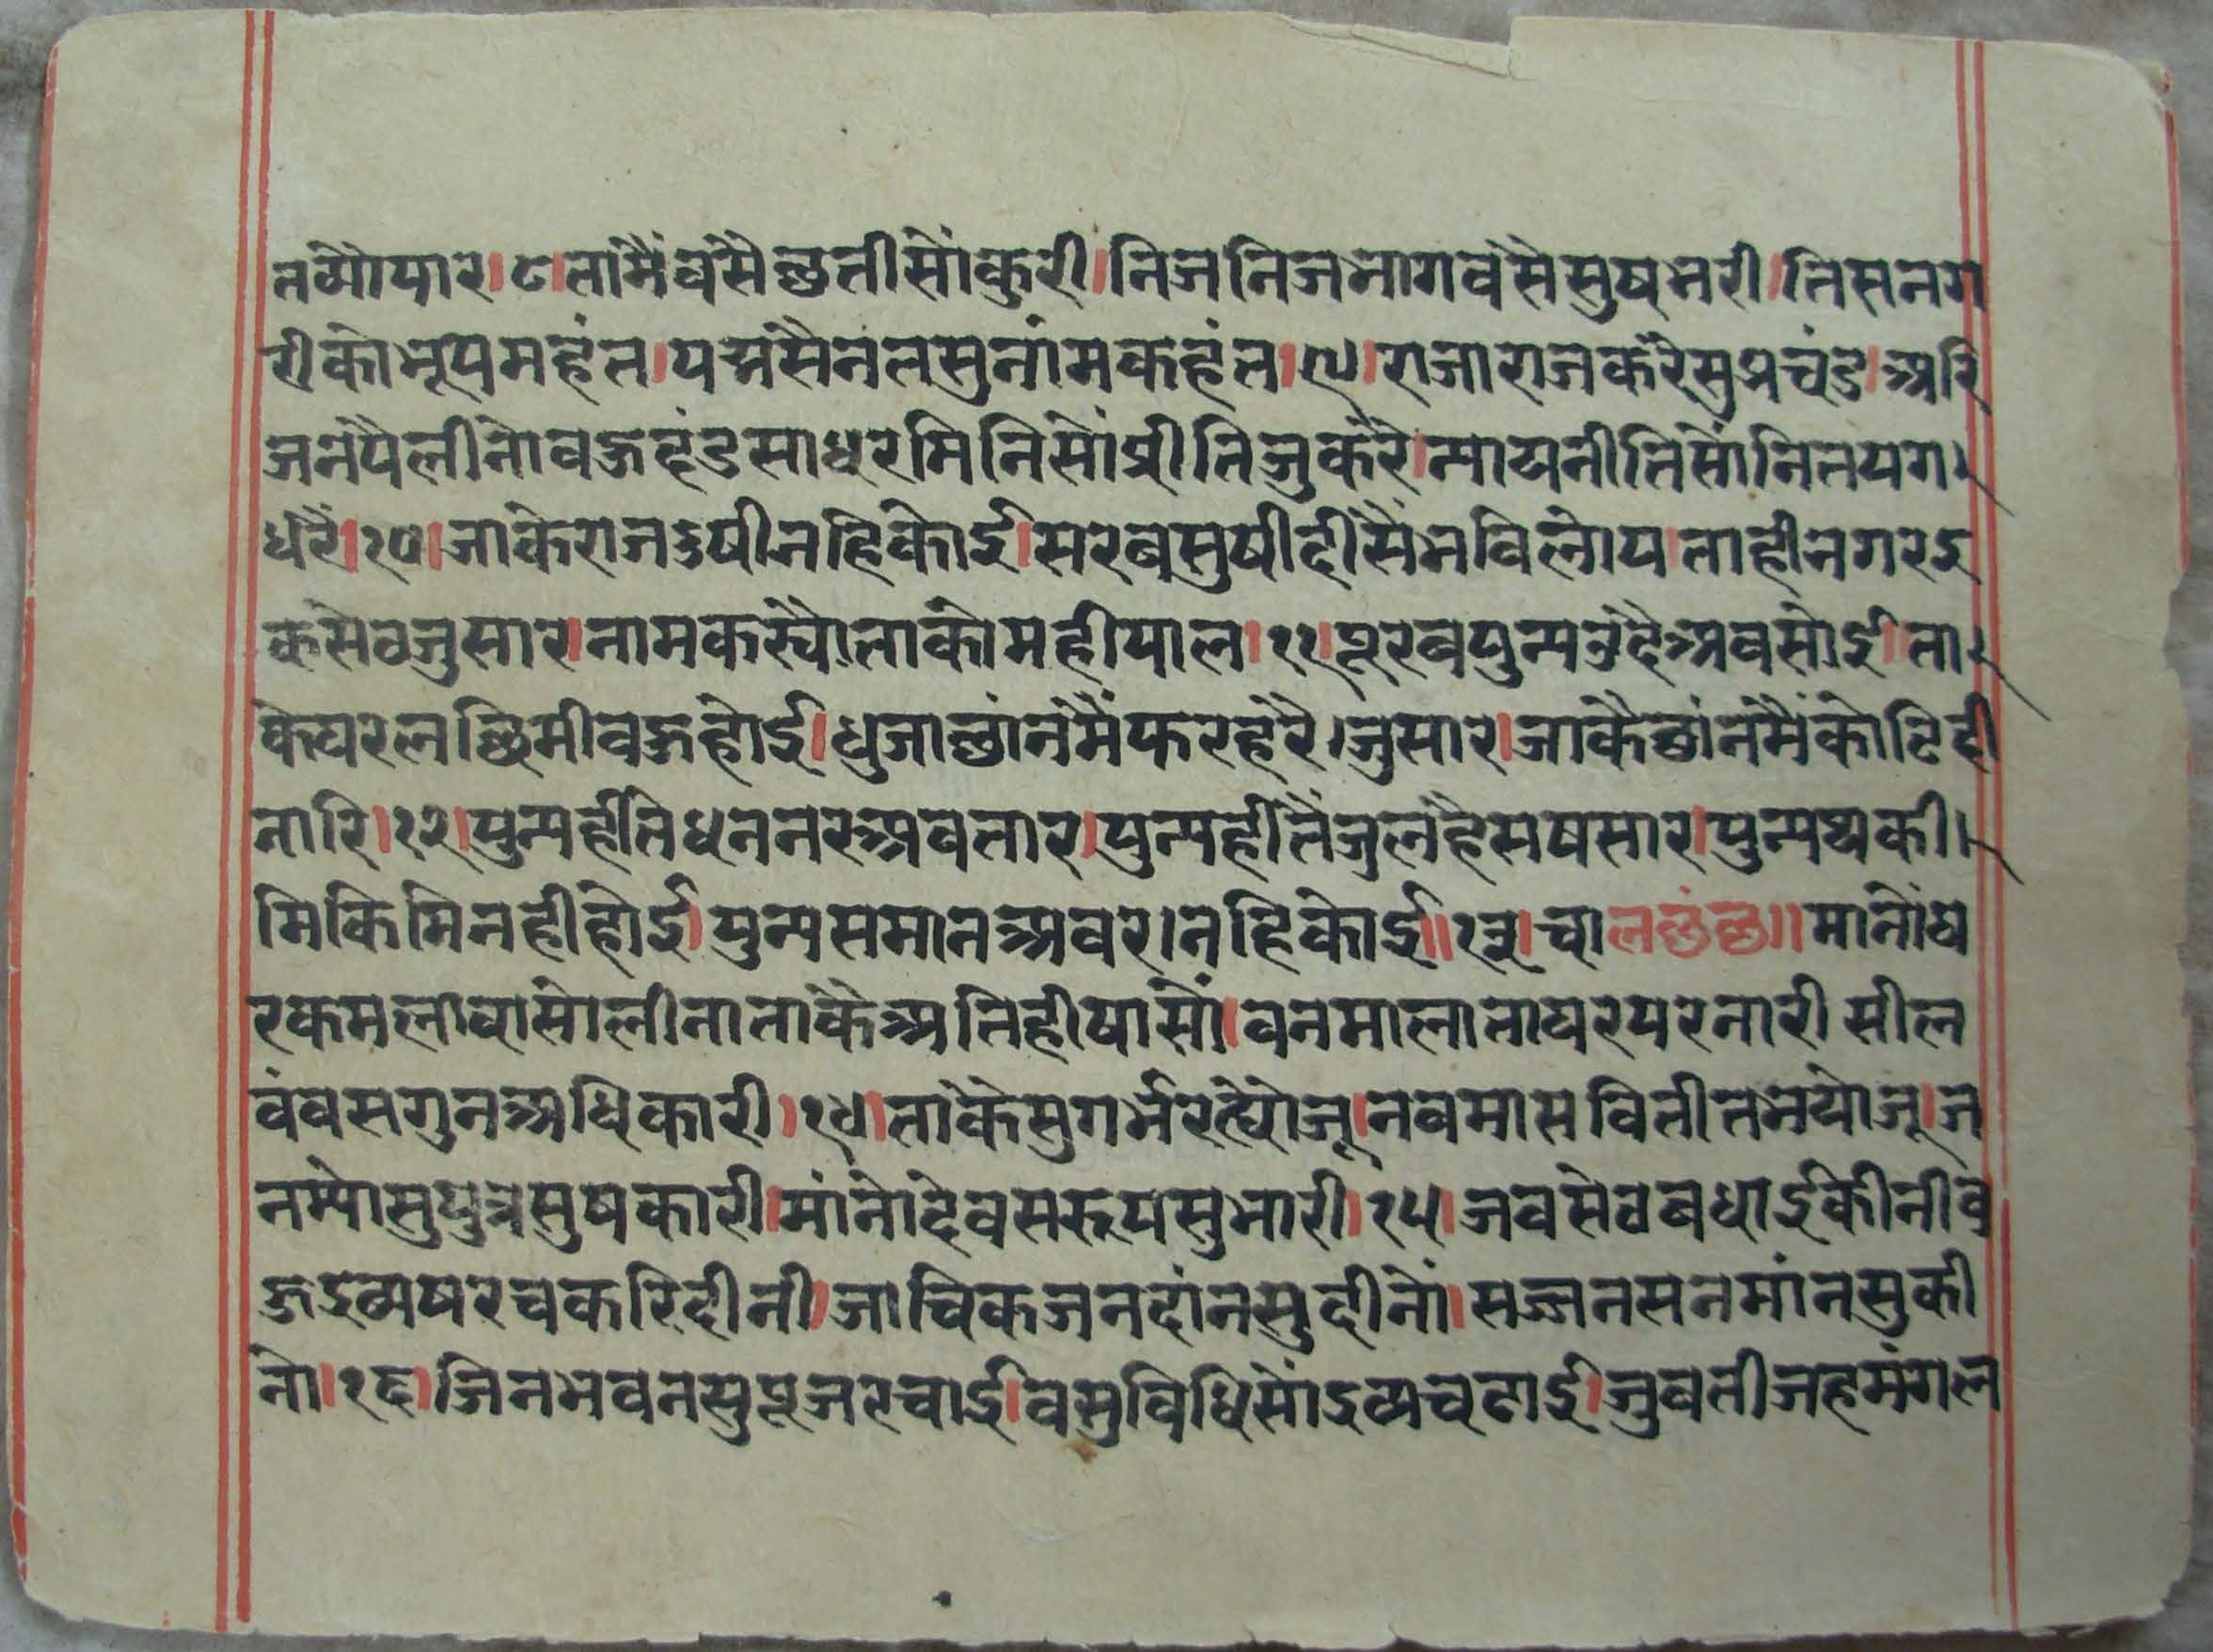 तव्यौपार।८।तामैंवसैछतीसौंकुरी।निजनिजभागवसैसुषभरी।तिसनग
रीकोभूपमहंत।पद्मसैनतसुनांमकहंत।९।राजाराजकरैसुप्रचंड।अरि
जनपैलीनोवऊदंडसाधरमिनिसौंप्रीतिजुकरै।न्यायनीतिसौंनितपग।
धरै।१०।जाकेराजदुषीनहिकोई।सरबसुषीदीसैंभविलोय।ताहीनगरइ
कसेवजुसार।नामकह्यौताकोमहीपाल।११।पूरबपुन्यउदैअबसोई।ता।
केघरलछिमीवऊहोई।धुजाछांनमैंफरहरै।जुसार।जाकैछांनमैंकोटिदी
नारि।१२।पुन्यहीतिधननरअवतार।पुन्यहीतैंजुलहैसषसार।पुन्यथकी।
मिकिमिनहीहोई।पुन्यसमानअवर।नहिकोई॥१३।चालछंछ॥मानौंघ
रकमलावासोलीनाताकैअतिहीपासौं।वनमालाताघरपरनारीसील
वंवसगुनअधिकारी।१४।ताकैसुगर्भरह्यौजू।नवमासवितीतभयोजू।ज
नम्योसुपुत्रसुषकारी।मांनोदेवसरूपसुभारी।१५।जवसेवबधाईकीनीव
ऊद्रव्यषरचकरिदीनी।जाचिकजनदांनसुदीनों।सज्जनसनमांनसुकी
नो।१६।जिनभवनसुपूजरचाई।वसुविधिसौंद्रव्यचढाई।जुवतीजहमंगल